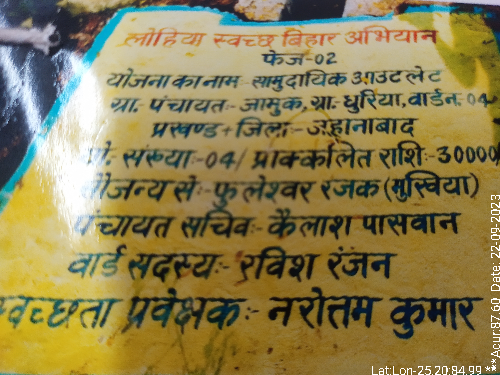 लोहिया स्वच्छ बिहार अभियान
फेज-02
योजना का नाम:- सामुदायिक आउटलेट
ग्रा. पंचायत:- जामुक, ग्रा. धुरिया, वार्ड न. 04
प्रखण्ड + जिला:- जहानाबाद
यो. संख्या:-04/ प्राक्कलित राशि:-30000/
सौजन्य से:- फुलेश्वर रजक (मुखिया)
पंचायत सचिव:- कैलाश पासवान
वार्ड सदस्य:- रविश रंजन
स्वच्छता प्रवेक्षक:- नरोत्तम कुमार
Lat Lon-25.20:84.99 ***Acur:87.60 Date: 22-09-2023